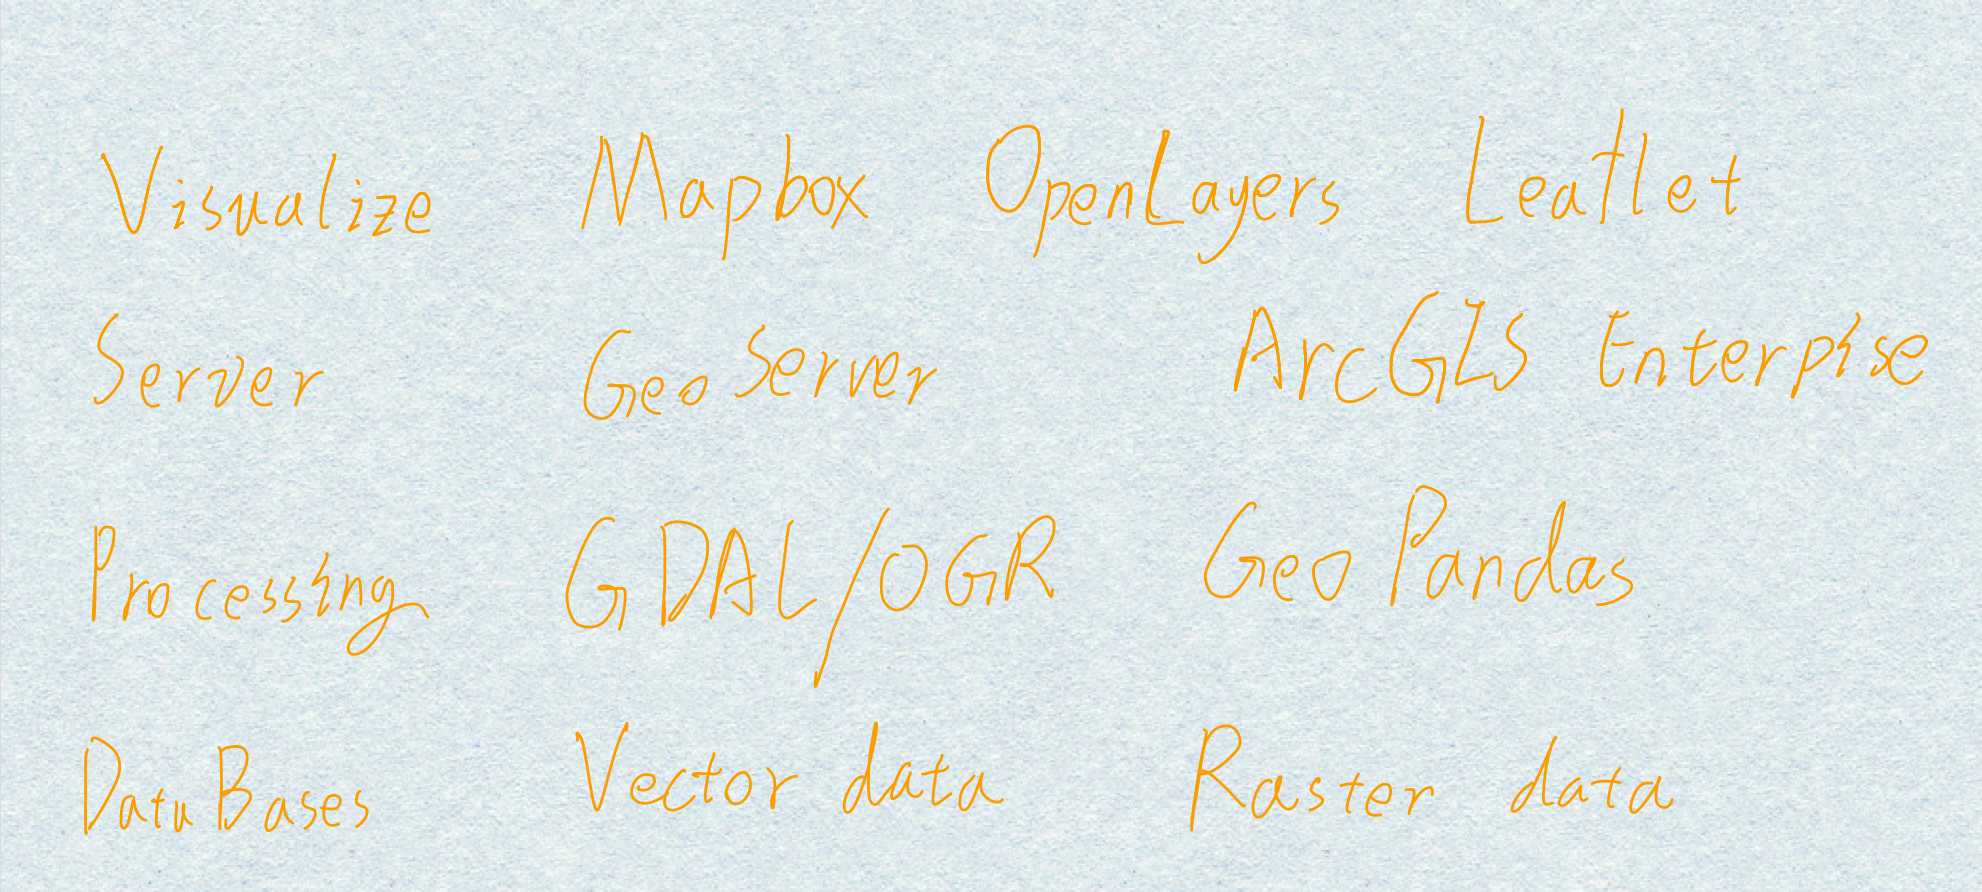 Visualize Mapbox OpenLayers Leaflet
Server GeoServer ArcGIS Enterpise
Processing GDAL/OGR GeoPandas
DataBases Vector data Raster data